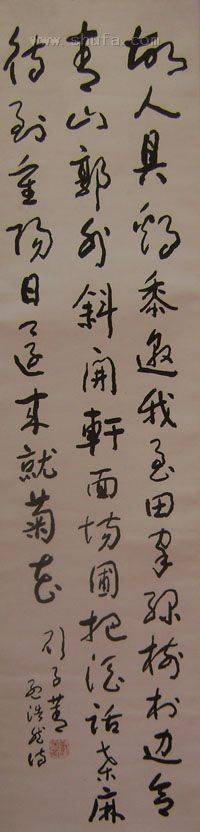 www.shufa.com
故人具鸡黍邀我至田家绿树村边合
青山郭外斜開軒面场圃把酒话桑麻
待到重阳日还来就菊花
孟浩然诗